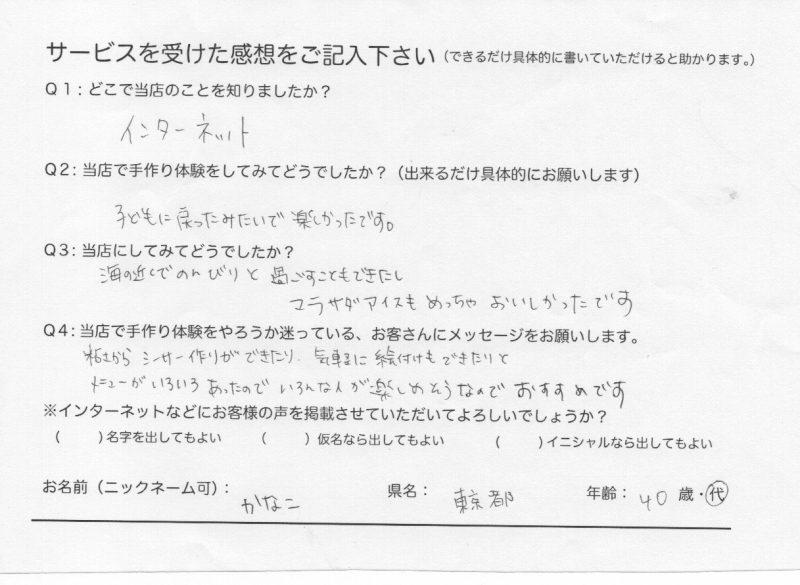 サービスを受けた感想をご記入下さい(できるだけ具体的に書いていただけると助かります。)
Q1:どこで当店のことを知りましたか?
インターネット
Q2:当店で手作り体験をしてみてどうでしたか?(出来るだけ具体的にお願いします)
子どもに戻ったみたいで楽しかったです。
Q3:当店にしてみてどうでしたか?
海の近くでのんびりと過ごすこともできたし
マラサダアイスもめっちゃおいしかったです
Q4:当店で手作り体験をやろうか迷っている、お客さんにメッセージをお願いします。
粘土からシーサー作りができたり、気軽に絵付けもできたりと
メニューがいろいろあったのでいろんな人が楽しめそうなのでおすすめです
※インターネットなどにお客様の声を掲載させていただいてよろしいでしょうか?
( )名字を出してもよい ( )仮名なら出してもよい ( )イニシャルなら出してもよい
お名前(ニックネーム可): かなこ 県名: 東京都 年齢: 40 歳・代